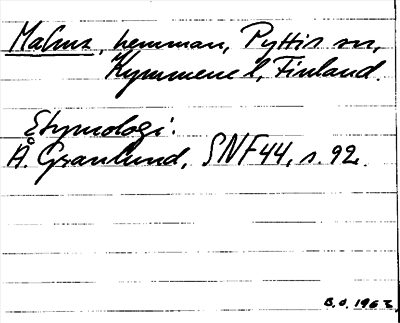 Malms, hemman, Pyttis sn,
Kymmene l, Finland.
Etymologi:
Å. Granlund, SNF 44, s. 92.
B.O. 1963.